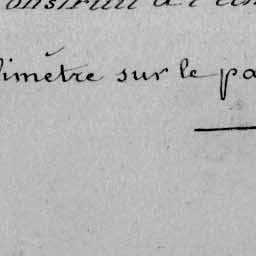 onstruit à l'
limètre sur le pa